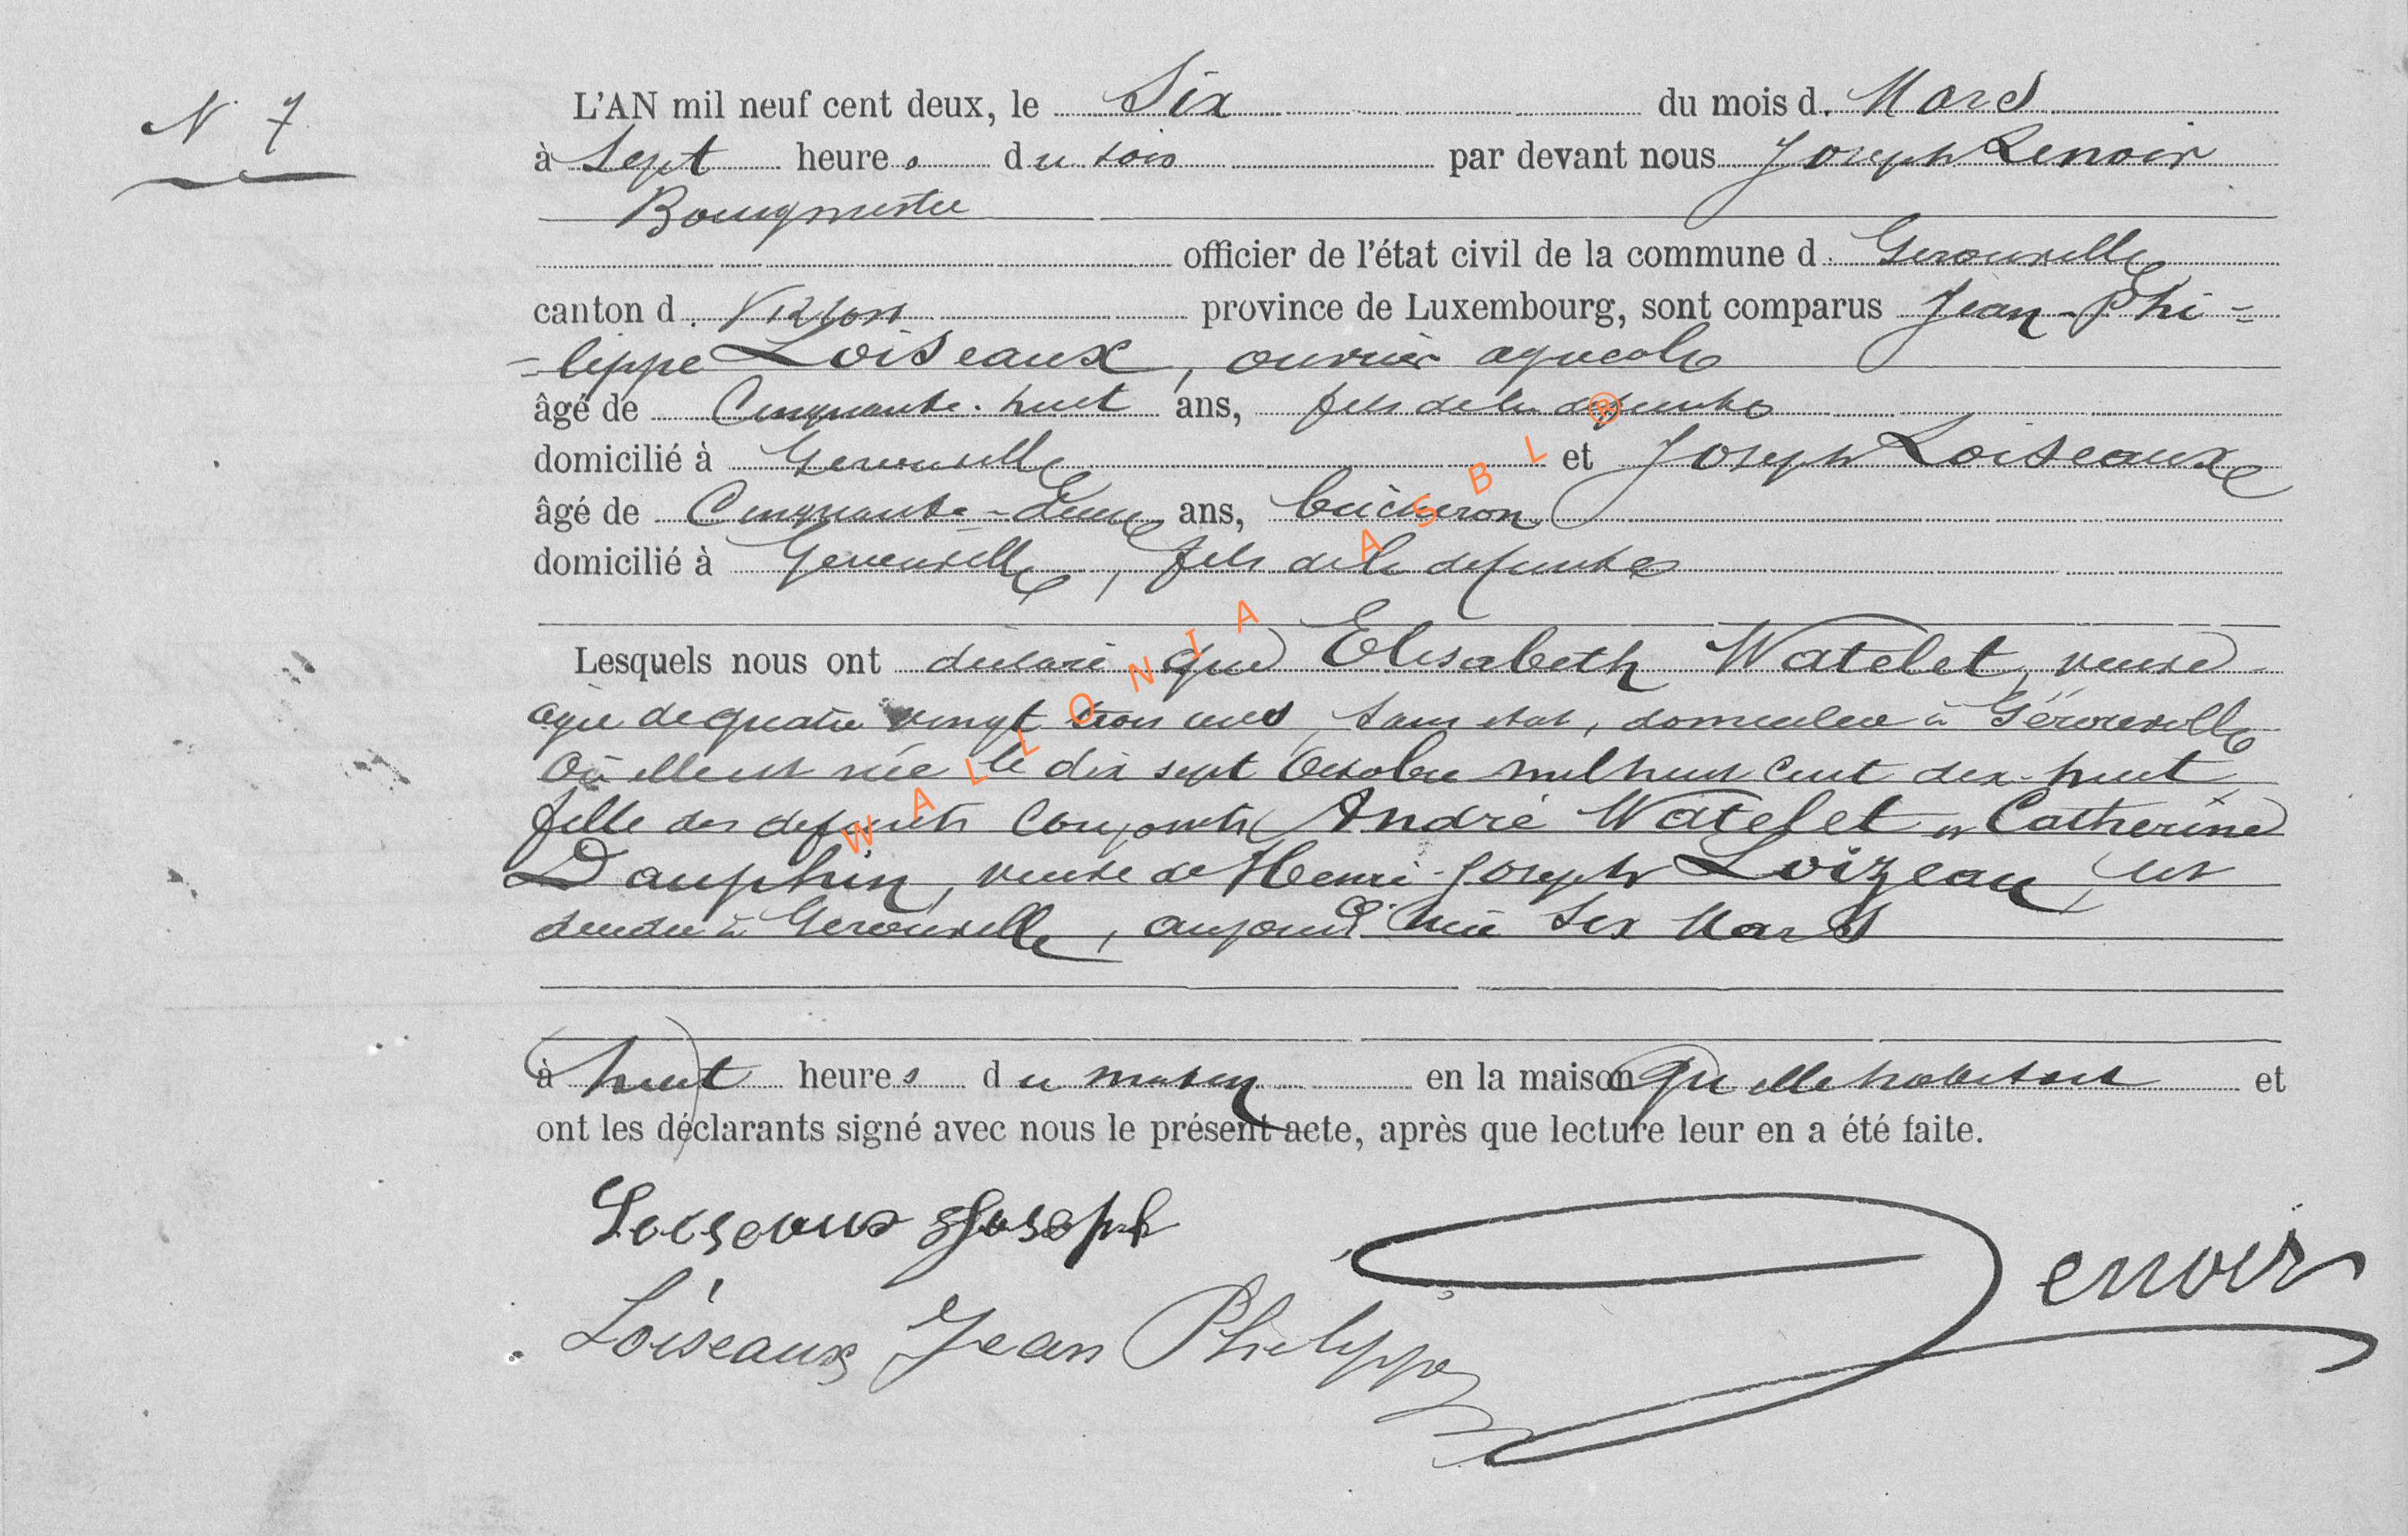 N. 7
L'AN mil neuf cent deux, le Six du mois d. Mars
à Sept heures du soir par devant nous Joseph Lenoir
Bourgmestre
officier de l'état civil de la commune d. Gerouville
canton d. Virton province de Luxembourg, sont comparus Jean-Phi=
=lippe Loiseaux, ouvrier agricole
âgé de Cinquante-huit ans, fils de la défunte
domicilié à Gerouville et Joseph Loiseaux
âgé de Cinquante-deux ans, bûcheron
domicilié à Gerouville, fils de la defunte
Lesquels nous ont déclaré que Elisabeth Watelet, veuve
agée de quatre vingt trois ans, sans état, domiciliée à Gérouville
où elle est née le dix sept Octobre mil huit cent dix-huit,
fille des defunts conjoints André Watelet et Catherine
Dauphin, veuve de Henri-Joseph Loizeau, est
décédée à Gerouville, aujourd'hui six Mars
à huit heures du matin en la maison qu'elle habitait et
ont les déclarants signé avec nous le présent acte, après que lecture leur en a été faite.
Loiseaux Joseph
Lenoir
Loiseaux Jean Philippe
WALLONIA ASBL ®